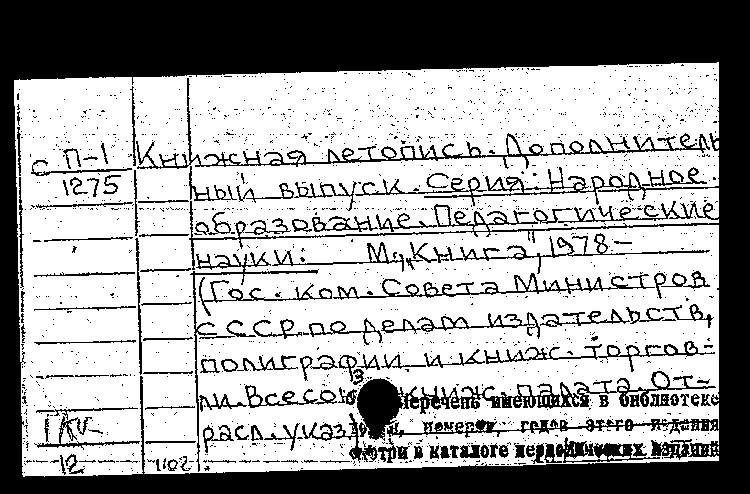 с П-1 Книжная летопись. Дополнитель
1275 ный выпуск. Серия: Народное
образование. Педагогические
науки: М., „Книга", 1978-
(Гос. ком. Совета Министров
СССР по делам издательств,
полиграфии и книж. торгов-
ли. Всесо книж. палата. От-
Перечень имеющихся в библиотеке
расл. указ номеров, годов этого издания
смотри в каталоге периодических изданий
12 1102